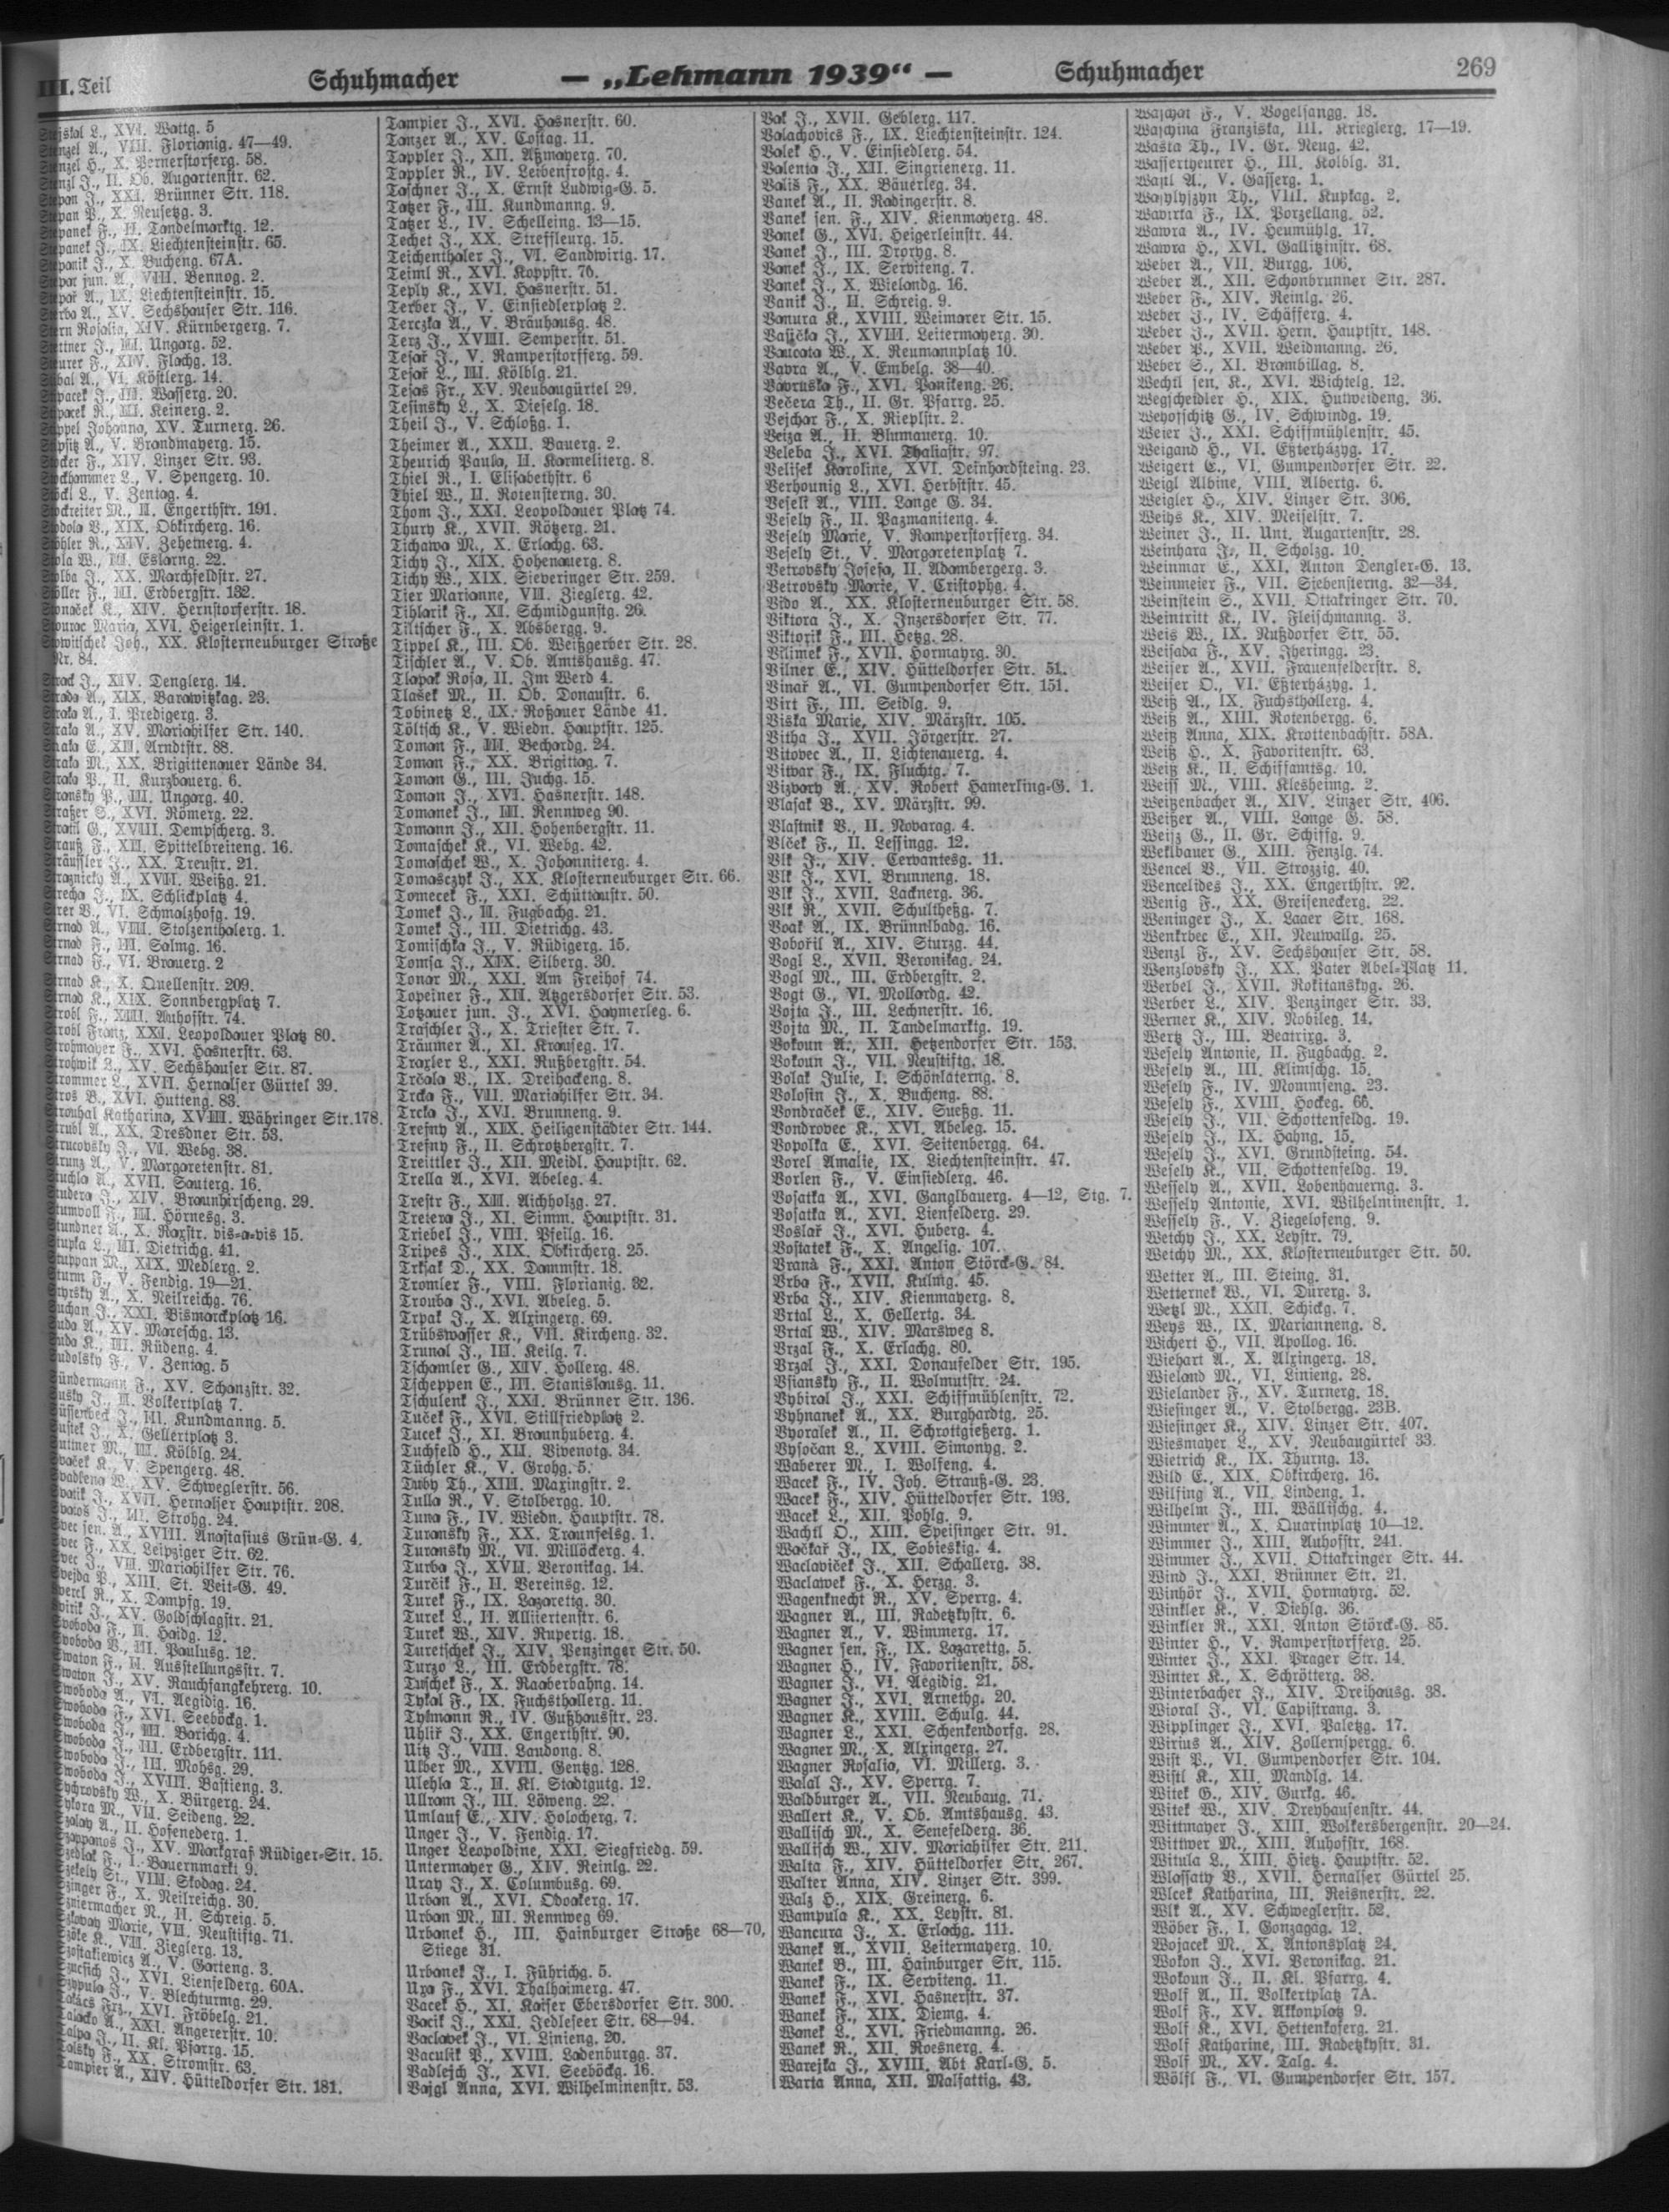 III. Teil
Schuhmacher
— „Lehmann 1939“ —
Schuhmacher
269
Stejskal L., XVI. Wattg. 5
Stenzel A., VIII. Florianig. 47—49.
Stenzel H., X. Pernerstorferg. 58.
Stenzl J., II. Ob. Augartenstr. 62.
Stepan J., XXI. Brünner Str. 118.
Stepan P., X. Neusetzg. 3.
Stepanek F., II. Tandelmarktg. 12.
Stepanek J., IX. Liechtensteinstr. 65.
Stepanik J., X. Bucheng. 67A.
Stepar jun. A., VIII. Bennog. 2.
Stepař A., IX. Liechtensteinstr. 15.
Sterba A., XV. Sechshauser Str. 116.
Stern Rosalia, XIV. Kürnbergerg. 7.
Stettner J., III. Ungarg. 52.
Steurer F., XIV. Flachg. 13.
A., VI. Köstlerg. 14.
Stipacek J., III. Wasserg. 20.
Stipacek R., III. Keinerg. 2.
Stippel Johanna, XV. Turnerg. 26.
Stipsitz A., V. Brandmayerg. 15.
Stocker F., XIV. Linzer Str. 93.
Stockhammer L., V. Spengerg. 10.
Stöckl L., V. Zentag. 4.
Stockreiter M., II. Engerthstr. 191.
Stodola V., XIX. Obkircherg. 16.
Stöhler R., XIV. Zehetnerg. 4.
Stola W., III. Eslarng. 22.
Stolba J., XX. Marchfeldstr. 27.
Stöller F., III. Erdbergstr. 132.
Stonaček K., XIV. Hernstorferstr. 18.
Stourac Maria, XVI. Heigerleinstr. 1.
Stowitschek Joh., XX. Klosterneuburger Straße
Nr. 84.
Strack J., XIV. Denglerg. 14.
Strada A., XIX. Barawitzkag. 23.
Straka A., I. Predigerg. 3.
Straka A., XV. Mariahilfer Str. 140.
Straka E., XII. Arndtstr. 88.
Straka M., XX. Brigittenauer Lände 34.
Straka P., II. Kurzbauerg. 6.
Stransky P., III. Ungarg. 40.
Straßer S., XVI. Römerg. 22.
G., XVIII. Dempscherg. 3.
Strauß F., XII. Spittelbreiteng. 16.
Sträussler J., XX. Treustr. 21.
Straznicky A., XVII. Weißg. 21.
Strecha J., IX. Schlickplatz 4.
Strer V., VI. Schmalzhofg. 19.
Strnad A., VIII. Stolzenthalerg. 1.
Strnad F., III. Salmg. 16.
Strnad F., VI. Brauerg. 2
Strnad K., X. Quellenstr. 209.
Strnad K., XIX. Sonnbergplatz 7.
Strobl F., XIII. Auhofstr. 74.
Strobl Franz, XXI. Leopoldauer Platz 80.
Strohmayer F., XVI. Hasnerstr. 63.
Strohwik L., XV. Sechshauser Str. 87.
Strommer L., XVII. Hernalser Gürtel 39.
Stros B., XVI. Hutteng. 83.
Strouhal Katharina, XVIII. Währinger Str. 178.
Strubl A., XX. Dresdner Str. 53.
Strucovsky J., VII. Webg. 38.
Strunz A., V. Margaretenstr. 81.
Stuchla A., XVII. Sauterg. 16.
Studera J., XIV. Braunhirscheng. 29.
Stumvoll F., III. Hörnesg. 3.
Stundner A., X. Raxstr. vis-a-vis 15.
Stupka L., III. Dietrichg. 41.
Stuppan M., XIX. Medlerg. 2.
Sturm F., V. Fendig. 19—21.
Styrsky A., X. Neilreichg. 76.
Suchan J., XXI. Bismarckplatz 16.
Suda A., XV. Mareschg. 13.
Suda K., III. Rüdeng. 4.
Sudolsky F., V. Zentag. 5
Sündermann F., XV. Schanzstr. 32.
Susky J., II. Volkertplatz 7.
J., III. Kundmanng. 5.
Sustek J., X. Gellertplatz 3.
Suttner M., III. Kölblg. 24.
Svaček K., V. Spengerg. 48.
Svadlena W., XV. Schweglerstr. 56.
Svatik J., XVII. Hernalser Hauptstr. 208.
Svatos J., III. Strohg. 24.
Svec sen. A., XVIII. Anastasius Grün-G. 4.
Svec F., XX. Leipziger Str. 62.
Svec J., VII. Mariahilfer Str. 76.
Svejda P., XIII. St. Veit-G. 49.
Sverel R., X. Dampfg. 19.
Svirik J., XV. Goldschlagstr. 21.
Svoboda F., II. Haidg. 12.
Svoboda V., III. Paulusg. 12.
Swaton F., II. Ausstellungsstr. 7.
Swaton J., XV. Rauchfangkehrerg. 10.
Swoboda A., VI. Aegidig. 16.
Swoboda F., XVI. Seeböckg. 1.
Swoboda J., III. Barichg. 4.
Swoboda J., III. Erdbergstr. 111.
Swoboda J., III. Mohsg. 29.
Swoboda J., XVIII. Bastieng. 3.
Sychrovsky W., X. Bürgerg. 24.
Sykora M., VII. Seideng. 22.
Szalay A., II. Hofenederg. 1.
Szappanos J., XV. Markgraf Rüdiger-Str. 15.
Szedlak F., I. Bauernmarkt 9.
Szekely St., VIII. Skodag. 24.
Szinger F., X. Neilreichg. 30.
Szniermacher N., II. Schreig. 5.
Szkovacz Marie, VII. Neustiftg. 71.
Szöke K., VII. Zieglerg. 13.
Szostakiewicz A., V. Garteng. 3.
J., XVI. Lienfelderg. 60A.
Szypula J., V. Blechturmg. 29.
Takács Frz., XVI. Fröbelg. 21.
Talacko A., XXI. Angererstr. 10.
Talpa J., II. Kl. Pfarrg. 15.
Talsky F., XX. Stromstr. 63.
Tampier A., XIV. Hütteldorfer Str. 181.
Tampier J., XVI. Hasnerstr. 60.
Tanzer A., XV. Costag. 11.
Tappler J., XII. Aßmayerg. 70.
Tappler R., IV. Leibenfrostg. 4.
Taschner J., X. Ernst Ludwig-G. 5.
Tatzer F., III. Kundmanng. 9.
Tatzer L., IV. Schelleing. 13—15.
Techet J., XX. Streffleurg. 15.
Teichenthaler J., VI. Sandwirtg. 17.
Teiml R., XVI. Koppstr. 76.
Teply K., XVI. Hasnerstr. 51.
Terber J., V. Einsiedlerplatz 2.
Terczka A., V. Bräuhausg. 48.
Terz J., XVIII. Semperstr. 51.
Tesař J., V. Ramperstorfferg. 59.
Tesař L., III. Kölblg. 21.
Tejas Fr., XV. Neubaugürtel 29.
Tesinsky L., X. Dieselg. 18.
Theil J., V. Schloßg. 1.
Theimer A., XXII. Bauerg. 2.
Theurich Paula, II. Karmeliterg. 8.
Thiel R., I. Elisabethstr. 6
Thiel W., II. Rotensterng. 30.
Thom J., XXI. Leopoldauer Platz 74.
Thury K., XVII. Rötzerg. 21.
Tichawa M., X. Erlachg. 63.
Tichy J., XIX. Hohenauerg. 8.
Tichy W., XIX. Sieveringer Str. 259.
Tier Marianne, VII. Zieglerg. 42.
Tihlarik F., XI. Schmidgunstg. 26.
Tiltscher F., X. Absbergg. 9.
Tippel K., III. Ob. Weißgerber Str. 28.
Tischler A., V. Ob. Amtshausg. 47.
Tlapak Rosa, II. Im Werd 4.
Tlašek M., II. Ob. Donaustr. 6.
Tobinetz L., IX. Roßauer Lände 41.
Töltsch K., V. Wiedn. Hauptstr. 125.
Toman F., III. Bechardg. 24.
Toman F., XX. Brigittag. 7.
Toman G., III. Juchg. 15.
Toman J., XVI. Hasnerstr. 148.
Tomanek J., III. Rennweg 90.
Tomann J., XII. Hohenbergstr. 11.
Tomaschek K., VI. Webg. 42.
Tomaschek W., X. Johanniterg. 4.
Tomasczyk J., XX. Klosterneuburger Str. 66.
Tomecek F., XXI. Schüttaustr. 50.
Tomek J., II. Fugbachg. 21.
Tomek J., III. Dietrichg. 43.
Tomischka J., V. Rüdigerg. 15.
Tomsa J., XIX. Silberg. 30.
Tonar M., XXI. Am Freihof 74.
Topeiner F., XII. Atzgersdorfer Str. 53.
Totzauer jun. J., XVI. Haymerleg. 6.
Traschler J., X. Triester Str. 7.
Träumer A., XI. Krauseg. 17.
Traxler L., XXI. Rußbergstr. 54.
Trčala V., IX. Dreihackeng. 8.
Trcka F., VII. Mariahilfer Str. 34.
Trcka J., XVI. Brunneng. 9.
Tresny A., XIX. Heiligenstädter Str. 144.
Tresny F., II. Schrotzbergstr. 7.
Treittler J., XII. Meidl. Hauptstr. 62.
Trella A., XVI. Abeleg. 4.
Trestr F., XIII. Aichholzg. 27.
Tretera J., XI. Simm. Hauptstr. 31.
Triebel J., VIII. Pfeilg. 16.
Tripes J., XIX. Obkircherg. 25.
Trksak D., XX. Dammstr. 18.
Tromler F., VIII. Florianig. 32.
Trouba J., XVI. Abeleg. 5.
Trpak J., X. Alxingerg. 69.
Trübswasser K., VII. Kircheng. 32.
Trunal J., III. Keilg. 7.
Tschamler G., XIV. Hollerg. 48.
Tscheppen E., III. Stanislausg. 11.
Tschulenk J., XXI. Brünner Str. 136.
Tuček F., XVI. Stillfriedplatz 2.
Tucek J., XI. Braunhuberg. 4.
Tuchfeld H., XII. Vivenotg. 34.
Tüchler K., V. Grohg. 5.
Tuby Th., XIII. Maxingstr. 2.
Tulla R., V. Stolbergg. 10.
Tuna F., IV. Wiedn. Hauptstr. 78.
Turansky F., XX. Traunfelsg. 1.
Turansky M., VI. Millöckerg. 4.
Turba J., XVII. Veronikag. 14.
Turčik F., II. Vereinsg. 12.
Turek F., IX. Lazaretig. 30.
Turek L., II. Alliiertenstr. 6.
Turek W., XIV. Rupertg. 18.
Turetschek J., XIV. Penzinger Str. 50.
Turzo L., III. Erdbergstr. 78.
Tuschek F., X. Raaberbahng. 14.
Tykal F., IX. Fuchsthallerg. 11.
Tylmann R., IV. Gußhausstr. 23.
Uhliř J., XX. Engerthstr. 90.
Uitz J., VIII. Laudong. 8.
Ulber M., XVIII. Gentzg. 128.
Ulehla T., II. Kl. Stadtgutg. 12.
Ullram J., III. Löweng. 22.
Umlauf E., XIV. Holocherg. 7.
Unger J., V. Fendig. 17.
Unger Leopoldine, XXI. Siegfriedg. 59.
Untermayer G., XIV. Reinlg. 22.
Uray J., X. Columbusg. 69.
Urban A., XVI. Odoakerg. 17.
Urban M., III. Rennweg 69.
Urbanek H., III. Hainburger Straße 68—70,
Stiege 31.
Urbanek J., I. Führichg. 5.
Uxa F., XVI. Thalhaimerg. 47.
Vacek H., XI. Kaiser Ebersdorfer Str. 300.
Vacik J., XXI. Jedleseer Str. 68—94.
Vaclavek J., VI. Linieng. 20.
Vaculik P., XVIII. Ladenburgg. 37.
Vadlejch J., XVI. Seeböckg. 16.
Vajgl Anna, XVI. Wilhelminenstr. 53.
Vak J., XVII. Geblerg. 117.
Valachovics F., IX. Liechtensteinstr. 124.
Valek H., V. Einsiedlerg. 54.
Valenta J., XII. Singrienerg. 11.
Valis F., XX. Bäuerleg. 34.
Vanek A., II. Radingerstr. 8.
Vanek sen. F., XIV. Kienmayerg. 48.
Vanek G., XVI. Heigerleinstr. 44.
Vanek J., III. Droryg. 8.
Vanek J., IX. Serviteng. 7.
Vanek J., X. Wielandg. 16.
Vanik J., II. Schreig. 9.
Vanura K., XVIII. Weimarer Str. 15.
Vasička J., XVIII. Leitermayerg. 30.
Vaucata W., X. Neumannplatz 10.
Vavra A., V. Embelg. 38—40.
Vavruska F., XVI. Panikeng. 26.
Večera Th., II. Gr. Pfarrg. 25.
Vejchar F., X. Rieplstr. 2.
Veiza A., II. Blumauerg. 10.
Veleba J., XVI. Thaliastr. 97.
Velisek Karoline, XVI. Deinhardsteing. 23.
Verhounig L., XVI. Herbststr. 45.
Veselt A., VIII. Lange G. 34.
Vesely F., II. Pazmaniteng. 4.
Vesely Marie, V. Ramperstorfferg. 34.
Vesely St., V. Margaretenplatz 7.
Vetrovsky Josefa, II. Adambergerg. 3.
Vetrovsky Marie, V. Cristophg. 4.
Vido A., XX. Klosterneuburger Str. 58.
Viktora J., X. Inzersdorfer Str. 77.
Viktorik F., III. Hetzg. 28.
Vilimek F., XVII. Hormayrg. 30.
Vilner E., XIV. Hütteldorfer Str. 51.
Vinař A., VI. Gumpendorfer Str. 151.
Virt F., III. Seidlg. 9.
Viska Marie, XIV. Märzstr. 105.
Vitha J., XVII. Jörgerstr. 27.
Vitovec A., II. Lichtenauerg. 4.
Vitvar F., IX. Fluchtg. 7.
Vizvary A., XV. Robert Hamerling-G. 1.
Vlasak V., XV. Märzstr. 99.
Vlastnik V., II. Novarag. 4.
Vlček F., II. Lessingg. 12.
Vlk J., XIV. Cervantesg. 11.
Vlk J., XVI. Brunneng. 18.
Vlk J., XVII. Lacknerg. 36.
Vlk R., XVII. Schultheßg. 7.
Voak A., IX. Brünnlbadg. 16.
Vobořil A., XIV. Sturzg. 44.
Vogl L., XVII. Veronikag. 24.
Vogl M., III. Erdbergstr. 2.
Vogt G., VI. Mollardg. 42.
Vojta J., III. Lechnerstr. 16.
Vojta M., II. Tandelmarktg. 19.
Vokoun A., XII. Hetzendorfer Str. 153.
Vokoun J., VII. Neustiftg. 18.
Volak Julie, I. Schönlaterng. 8.
Volosin J., X. Bucheng. 88.
Vondraček E., XIV. Sueßg. 11.
Vondrovec K., XVI. Abeleg. 15.
Vopolka E., XVI. Seitenbergg. 64.
Vorel Amalie, IX. Liechtensteinstr. 47.
Vorlen F., V. Einsiedlerg. 46.
Vosatka A., XVI. Ganglbauerg. 4—12, Stg. 7.
Vosatka A., XVI. Lienfelderg. 29.
Voslař J., XVI. Huberg. 4.
Vostatek F., X. Angelig. 107.
Vraná F., XXI. Anton Störck-G. 84.
Vrba F., XVII. Kulmg. 45.
Vrba J., XIV. Kienmayerg. 8.
Vrtal L., X. Gellertg. 34.
Vrtal W., XIV. Marsweg 8.
Vrzal F., X. Erlachg. 80.
Vrzal J., XXI. Donaufelder Str. 195.
Vsiansky F., II. Wolmutstr. 24.
Vybiral J., XXI. Schiffmühlenstr. 72.
Vyhnanek A., XX. Burghardtg. 25.
Vyoralek A., II. Schrottgießerg. 1.
Vysočan L., XVIII. Simonyg. 2.
Waberer M., I. Wolfeng. 4.
Wacek F., IV. Joh. Strauß-G. 23.
Wacek F., XIV. Hütteldorfer Str. 193.
Wacek L., XII. Pohlg. 9.
Wachtl O., XIII. Speisinger Str. 91.
Wačkař J., IX. Sobieskig. 4.
Waclaviček J., XII. Schallerg. 38.
Waclawek F., X. Herzg. 3.
Wagenknecht R., XV. Sperrg. 4.
Wagner A., III. Radetzkystr. 6.
Wagner A., V. Wimmerg. 17.
Wagner sen. F., IX. Lazarettg. 5.
Wagner H., IV. Favoritenstr. 58.
Wagner J., VI. Aegidig. 21.
Wagner J., XVI. Arnethg. 20.
Wagner K., XVIII. Schulg. 44.
Wagner L., XXI. Schenkendorfg. 28.
Wagner M., X. Alxingerg. 27.
Wagner Rosalia, VI. Millerg. 3.
Walal J., XV. Sperrg. 7.
Waldburger A., VII. Neubaug. 71.
Wallert K., V. Ob. Amtshausg. 43.
Wallisch M., X. Senefelderg. 36.
Wallisch W., XIV. Mariahilfer Str. 211.
Walta F., XIV. Hütteldorfer Str. 267.
Walter Anna, XIV. Linzer Str. 399.
Walz H., XIX. Greinerg. 6.
Wampula K., XX. Leystr. 81.
Wancura J., X. Erlachg. 111.
Wanek A., XVII. Leitermayerg. 10.
Wanek B., III. Hainburger Str. 115.
Wanek F., IX. Serviteng. 11.
Wanek F., XVI. Hasnerstr. 37.
Wanek F., XIX. Diemg. 4.
Wanek L., XVI. Friedmanng. 26.
Wanek R., XII. Roesnerg. 4.
Warejka J., XVIII. Abt Karl-G. 5.
Warta Anna, XII. Malfattig. 43.
Waschar F., V. Vogelsangg. 18.
Waschina Franziska, III. Krieglerg. 17—19.
Wasta Th., IV. Gr. Neug. 42.
Wassertheurer H., III. Kölblg. 31.
Wastl A., V. Gasserg. 1.
Wasylyszyn Th., VIII. Kupkag. 2.
Wavirka F., IX. Porzellang. 52.
Wawra A., IV. Heumühlg. 17.
Wawra H., XVI. Gallitzinstr. 68.
Weber A., VII. Burgg. 106.
Weber A., XII. Schönbrunner Str. 287.
Weber F., XIV. Reinlg. 26.
Weber J., IV. Schäfferg. 4.
Weber J., XVII. Hern. Hauptstr. 148.
Weber P., XVII. Weidmanng. 26.
Weber S., XI. Brambillag. 8.
Wechtl sen. K., XVI. Wichtelg. 12.
Wegscheidler H., XIX. Hutweideng. 36.
Wehofschitz G., IV. Schwindg. 19.
Weier J., XXI. Schiffmühlenstr. 45.
Weigand H., VI. Eßterházyg. 17.
Weigert E., VI. Gumpendorfer Str. 22.
Weigl Albine, VIII. Albertg. 6.
Weigler H., XIV. Linzer Str. 306.
Weihs K., XIV. Meiselstr. 7.
Weiner J., II. Unt. Augartenstr. 28.
Weinhara J., II. Scholzg. 10.
Weinmar E., XXI. Anton Dengler-G. 13.
Weinmeier F., VII. Siebensterng. 32—34.
Weinstein S., XVII. Ottakringer Str. 70.
Weintritt K., IV. Fleischmanng. 3.
Weis W., IX. Nußdorfer Str. 55.
Weisada F., XV. Iheringg. 23.
Weiser A., XVII. Frauenfelderstr. 8.
Weiser O., VI. Eßterházyg. 1.
Weiß A., IX. Fuchsthallerg. 4.
Weiß A., XIII. Rotenbergg. 6.
Weiß Anna, XIX. Krottenbachstr. 58A.
Weiß H., X. Favoritenstr. 63.
Weiß K., II. Schiffamtsg. 10.
Weiss M., VIII. Klesheimg. 2.
Weißenbacher A., XIV. Linzer Str. 406.
Weißer A., VIII. Lange G. 58.
Weisz G., II. Gr. Schiffg. 9.
Weklbauer G., XIII. Fenzlg. 74.
Wencel V., VII. Strozzig. 40.
Wencelides J., XX. Engerthstr. 92.
Wenig F., XX. Greiseneckerg. 22.
Weninger J., X. Laaer Str. 168.
Wenkrbec E., XII. Neuwallg. 25.
Wenzl F., XV. Sechshauser Str. 58.
Wenzlovsky J., XX. Pater Abel-Platz 11.
Werbel J., XVII. Rokitanskyg. 26.
Werber L., XIV. Penzinger Str. 33.
Werner K., XIV. Nobileg. 14.
Wertz J., III. Beatrixg. 3.
Wesely Antonie, II. Fugbachg. 2.
Wesely A., III. Klimschg. 15.
Wesely F., IV. Mommseng. 23.
Wesely F., XVIII. Hockeg. 66.
Wesely J., VII. Schottenfeldg. 19.
Wesely J., IX. Hahng. 15.
Wesely J., XVI. Grundsteing. 54.
Wesely K., VII. Schottenfeldg. 19.
Wessely A., XVII. Lobenhauerng. 3.
Wessely Antonie, XVI. Wilhelminenstr. 1.
Wessely F., V. Ziegelofeng. 9.
Wetchy J., XX. Leystr. 79.
Wetchy M., XX. Klosterneuburger Str. 50.
Wetter A., III. Steing. 31.
Wetternek W., VI. Dürerg. 3.
Wetzl M., XXII. Schickg. 7.
Weys W., IX. Marianneng. 8.
Wichert H., VII. Apollog. 16.
Wiehart A., X. Alxingerg. 18.
Wieland M., VI. Linieng. 28.
Wielander F., XV. Turnerg. 18.
Wiesinger A., V. Stolbergg. 23B.
Wiesinger K., XIV. Linzer Str. 407.
Wiesmayer L., XV. Neubaugürtel 33.
Wietrich K., IX. Thurng. 13.
Wild E., XIX. Obkircherg. 16.
Wilfing A., VII. Lindeng. 1.
Wilhelm J., III. Wällischg. 4.
Wimmer A., X. Quarinplatz 10—12.
Wimmer J., XIII. Auhofstr. 241.
Wimmer J., XVII. Ottakringer Str. 44.
Wind J., XXI. Brünner Str. 21.
Winhör J., XVII. Hormayrg. 52.
Winkler K., V. Diehlg. 36.
Winkler R., XXI. Anton Störck-G. 85.
Winter H., V. Ramperstorfferg. 25.
Winter J., XXI. Prager Str. 14.
Winter K., X. Schrötterg. 38.
Winterbacher J., XIV. Dreihausg. 38.
Wioral J., VI. Capistrang. 3.
Wipplinger J., XVI. Paletzg. 17.
Wirius A., XIV. Zollernspergg. 6.
Wist P., VI. Gumpendorfer Str. 104.
Wistl K., XII. Mandlg. 14.
Witek G., XIV. Gurkg. 46.
Witek W., XIV. Dreyhausenstr. 44.
Wittmayer J., XIII. Wolkersbergenstr. 20—24.
Wittwer M., XIII. Auhofstr. 168.
Witula L., XIII. Hietz. Hauptstr. 52.
Wlassaty V., XVII. Hernalser Gürtel 25.
Wlcek Katharina, III. Reisnerstr. 22.
Wlk A., XV. Schweglerstr. 52.
Wöber F., I. Gonzagag. 12.
Wojacek M., X. Antonsplatz 24.
Wokon J., XVI. Veronikag. 21.
Wokoun J., II. Kl. Pfarrg. 4.
Wolf A., II. Volkertplatz 7A.
Wolf F., XV. Akkonplatz 9.
Wolf K., XVI. Hettenkoferg. 21.
Wolf Katharine, III. Radetzkystr. 31.
Wolf M., XV. Talg. 4.
Wölfl F., VI. Gumpendorfer Str. 157.